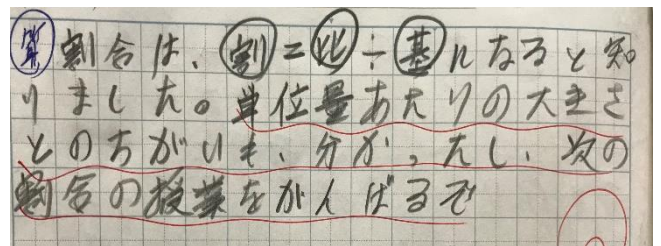 算 割合は、割=比÷基になると知
りました。単位量あたりの大きさ
とのちがいも、分かったし、次の
割合の授業をがんばるぞ